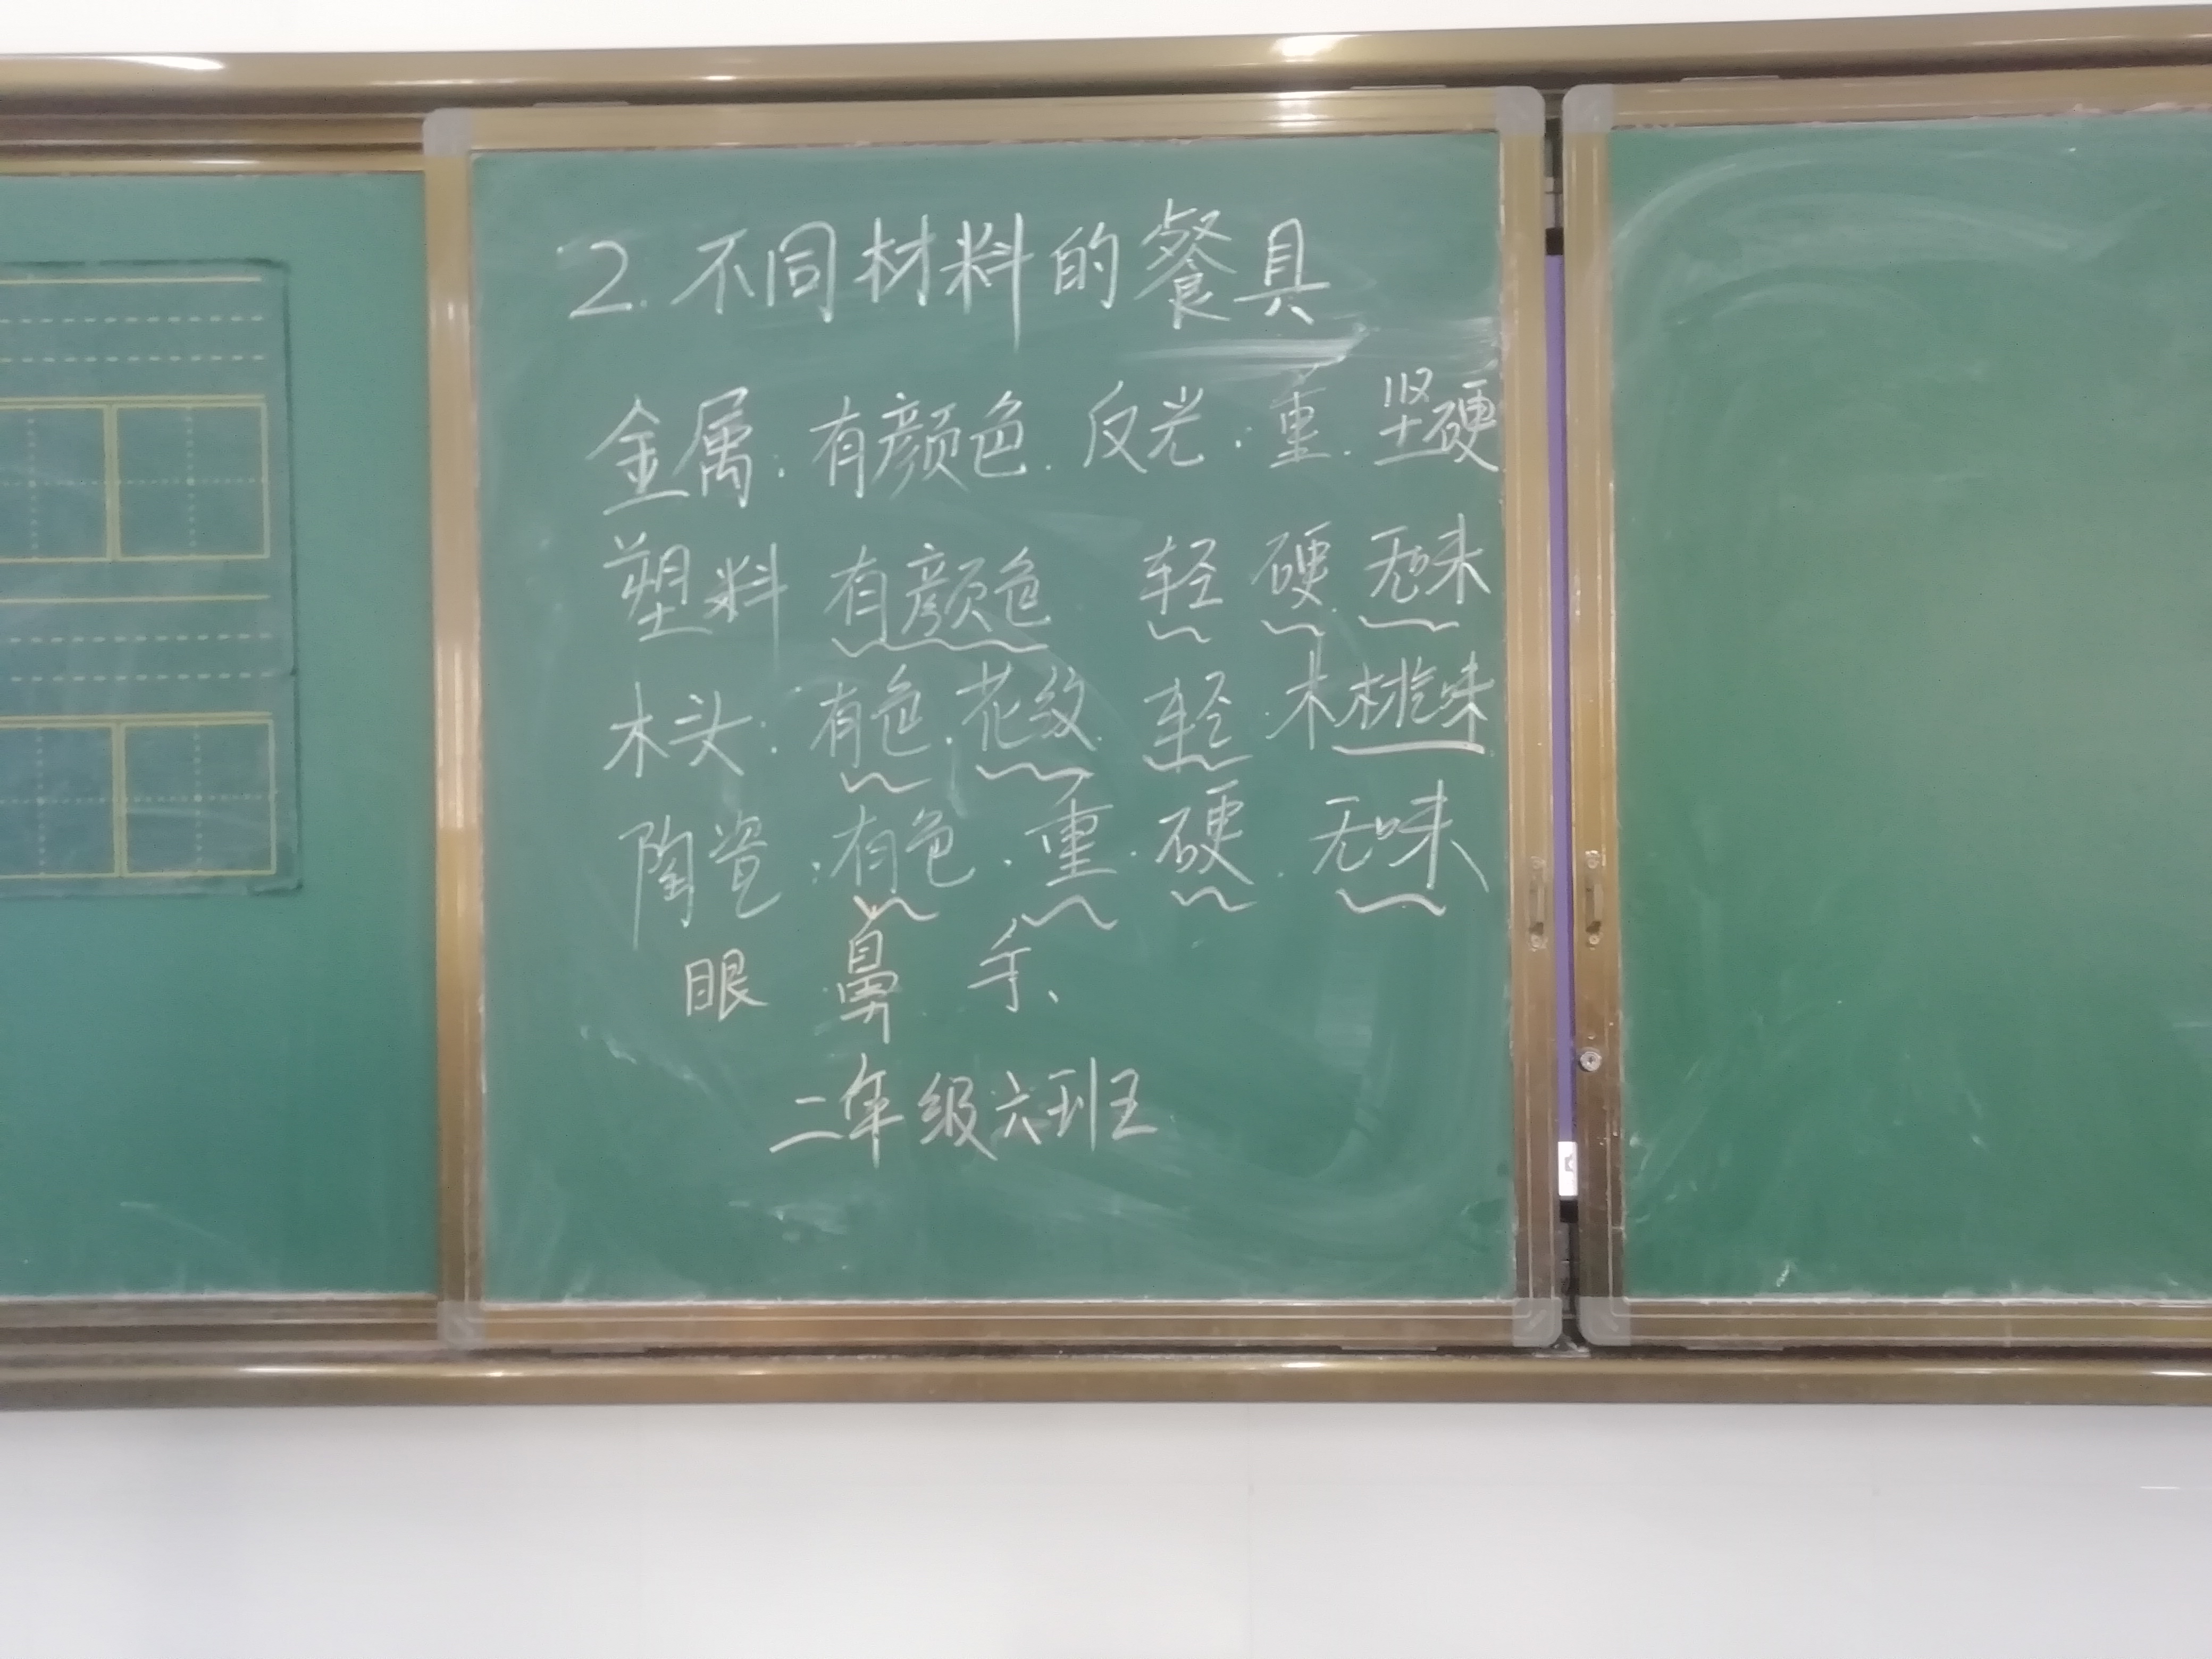 2.不同材料的餐具
金属:有颜色.反光.重.坚硬
塑料 有颜色 轻 硬 无味
木头:有色.花纹.轻.木桃味
陶瓷:有色.重.硬.无味
眼 鼻 手、
二年级六班